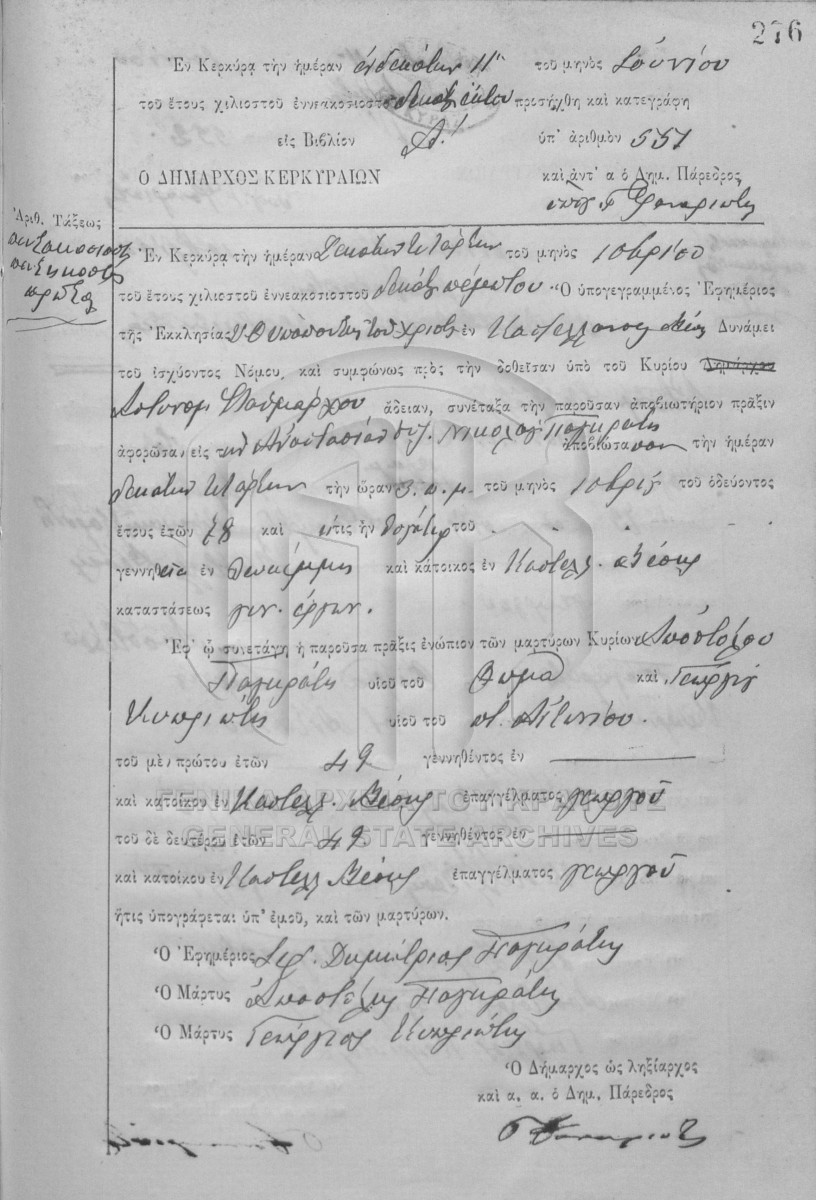 276
Ἐν Κερκύρᾳ τὴν ἡμέραν ἑνδεκάτην 11ην τοῦ μηνὸς Ἰουνίου
τοῦ ἔτους χιλιοστοῦ ἐννεακοσιοστοῦ δεκάτου ἕκτου προσήχθη καὶ κατεγράφη
εἰς Βιβλίον Α! ὑπ' ἀριθμὸν 551
Ο ΔΗΜΑΡΧΟΣ ΚΕΡΚΥΡΑΙΩΝ καὶ ἀντ' α ὁ Δημ. Πάρεδρος
Ἀριθ. Τάξεως
πεντακοσιοστή
πεντηκοστή
πρώτη
Ἐν Κερκύρᾳ τὴν ἡμέραν δεκάτην τετάρτην τοῦ μηνὸς 10βρίου
τοῦ ἔτους χιλιοστοῦ ἐννεακοσιοστοῦ δεκάτου πέμπτου Ὁ ὑπογεγραμμένος Ἐφημέριος
τῆς Ἐκκλησίας Υ.Θ. Ὑπαπαντῆς τοῦ Χριστοῦ ἐν Καστελλάνους Μέσης Δυνάμει
τοῦ ἰσχύοντος Νόμου, καὶ συμφώνως πρὸς τὴν δοθεῖσαν ὑπὸ τοῦ Κυρίου Δημάρχου
Ἀστυνομ. Σταθμάρχου ἄδειαν, συνέταξα τὴν παροῦσαν ἀποβιωτήριον πρᾶξιν
ἀφορῶσαν εἰς τὴν Ἀναστασίαν Νικολάου Παγκράτη ἀποβιώσασαν τὴν ἡμέραν
δεκάτην τετάρτην τὴν ὥραν 3. π. μ. τοῦ μηνὸς 10βρίου τοῦ ὁδεύοντος
ἔτους ἐτῶν 78 καὶ ἥτις ἦν θυγάτηρ τοῦ
γεννηθεῖσα ἐν καὶ κάτοικος ἐν Καστελλ. Μέσης
καταστάσεως
Ἐφ' ᾧ συνετάγη ἡ παροῦσα πρᾶξις ἐνώπιον τῶν μαρτύρων Κυρίων Ἀποστόλου
Παγκράτη υἱοῦ τοῦ Θωμᾶ καὶ Γεωργίου
Κυπριώτη υἱοῦ τοῦ π. Ἀντωνίου.
τοῦ μὲν πρώτου ἐτῶν 49 γεννηθέντος ἐν
καὶ κατοίκου ἐν Καστελλ. Μέσης ἐπαγγέλματος γεωργοῦ
τοῦ δὲ δευτέρου ἐτῶν 49 γεννηθέντος ἐν
καὶ κατοίκου ἐν Καστελλ Μέσης ἐπαγγέλματος γεωργοῦ
ἥτις ὑπογράφεται ὑπ' ἐμοῦ, καὶ τῶν μαρτύρων.
Ὁ Ἐφημέριος Ἱερ. Δημήτριος Παγκράτης
Ὁ Μάρτυς Ἀποστόλης Παγκράτης
Ὁ Μάρτυς Γεώργιος Κυπριώτης
Ὁ Δήμαρχος ὡς ληξίαρχος
καὶ α. α. ὁ Δημ. Πάρεδρος
ΓΕΝΙΚΑ ΑΡΧΕΙΑ ΤΟΥ ΚΡΑΤΟΥΣ
GENERAL STATE ARCHIVES